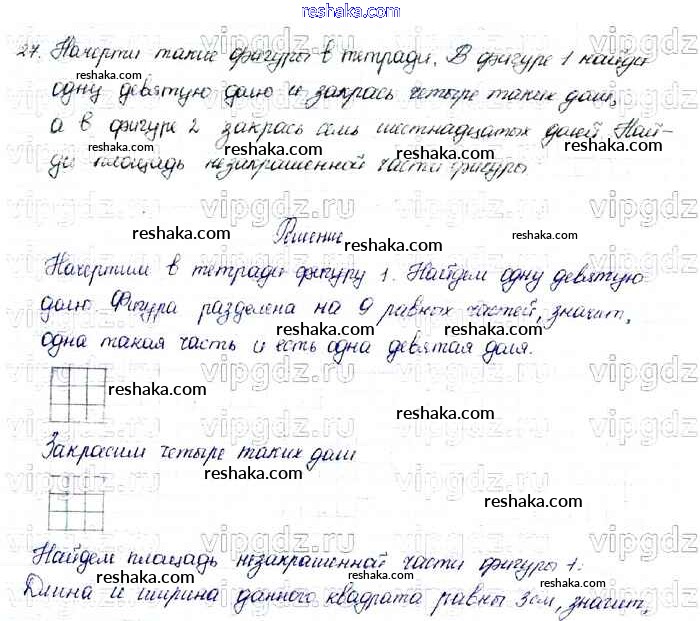 reshaka.com
27. Начерти такие фигуры в тетради. В фигуре 1 найди
одну девятую долю и закрась четыре таких доли,
а в фигуре 2 закрась семь шестнадцатых долей. Най-
ди площадь незакрашенной части фигуры
Решение
Начертим в тетради фигуру 1. Найдем одну девятую
долю. Фигура разделена на 9 равных частей, значит,
одна такая часть и есть одна девятая доля.
Закрасим четыре таких доли
Найдем площадь незакрашенной части фигуры 1.
Длина и ширина данного квадрата равны 3см, значит,
vipgdz.ru